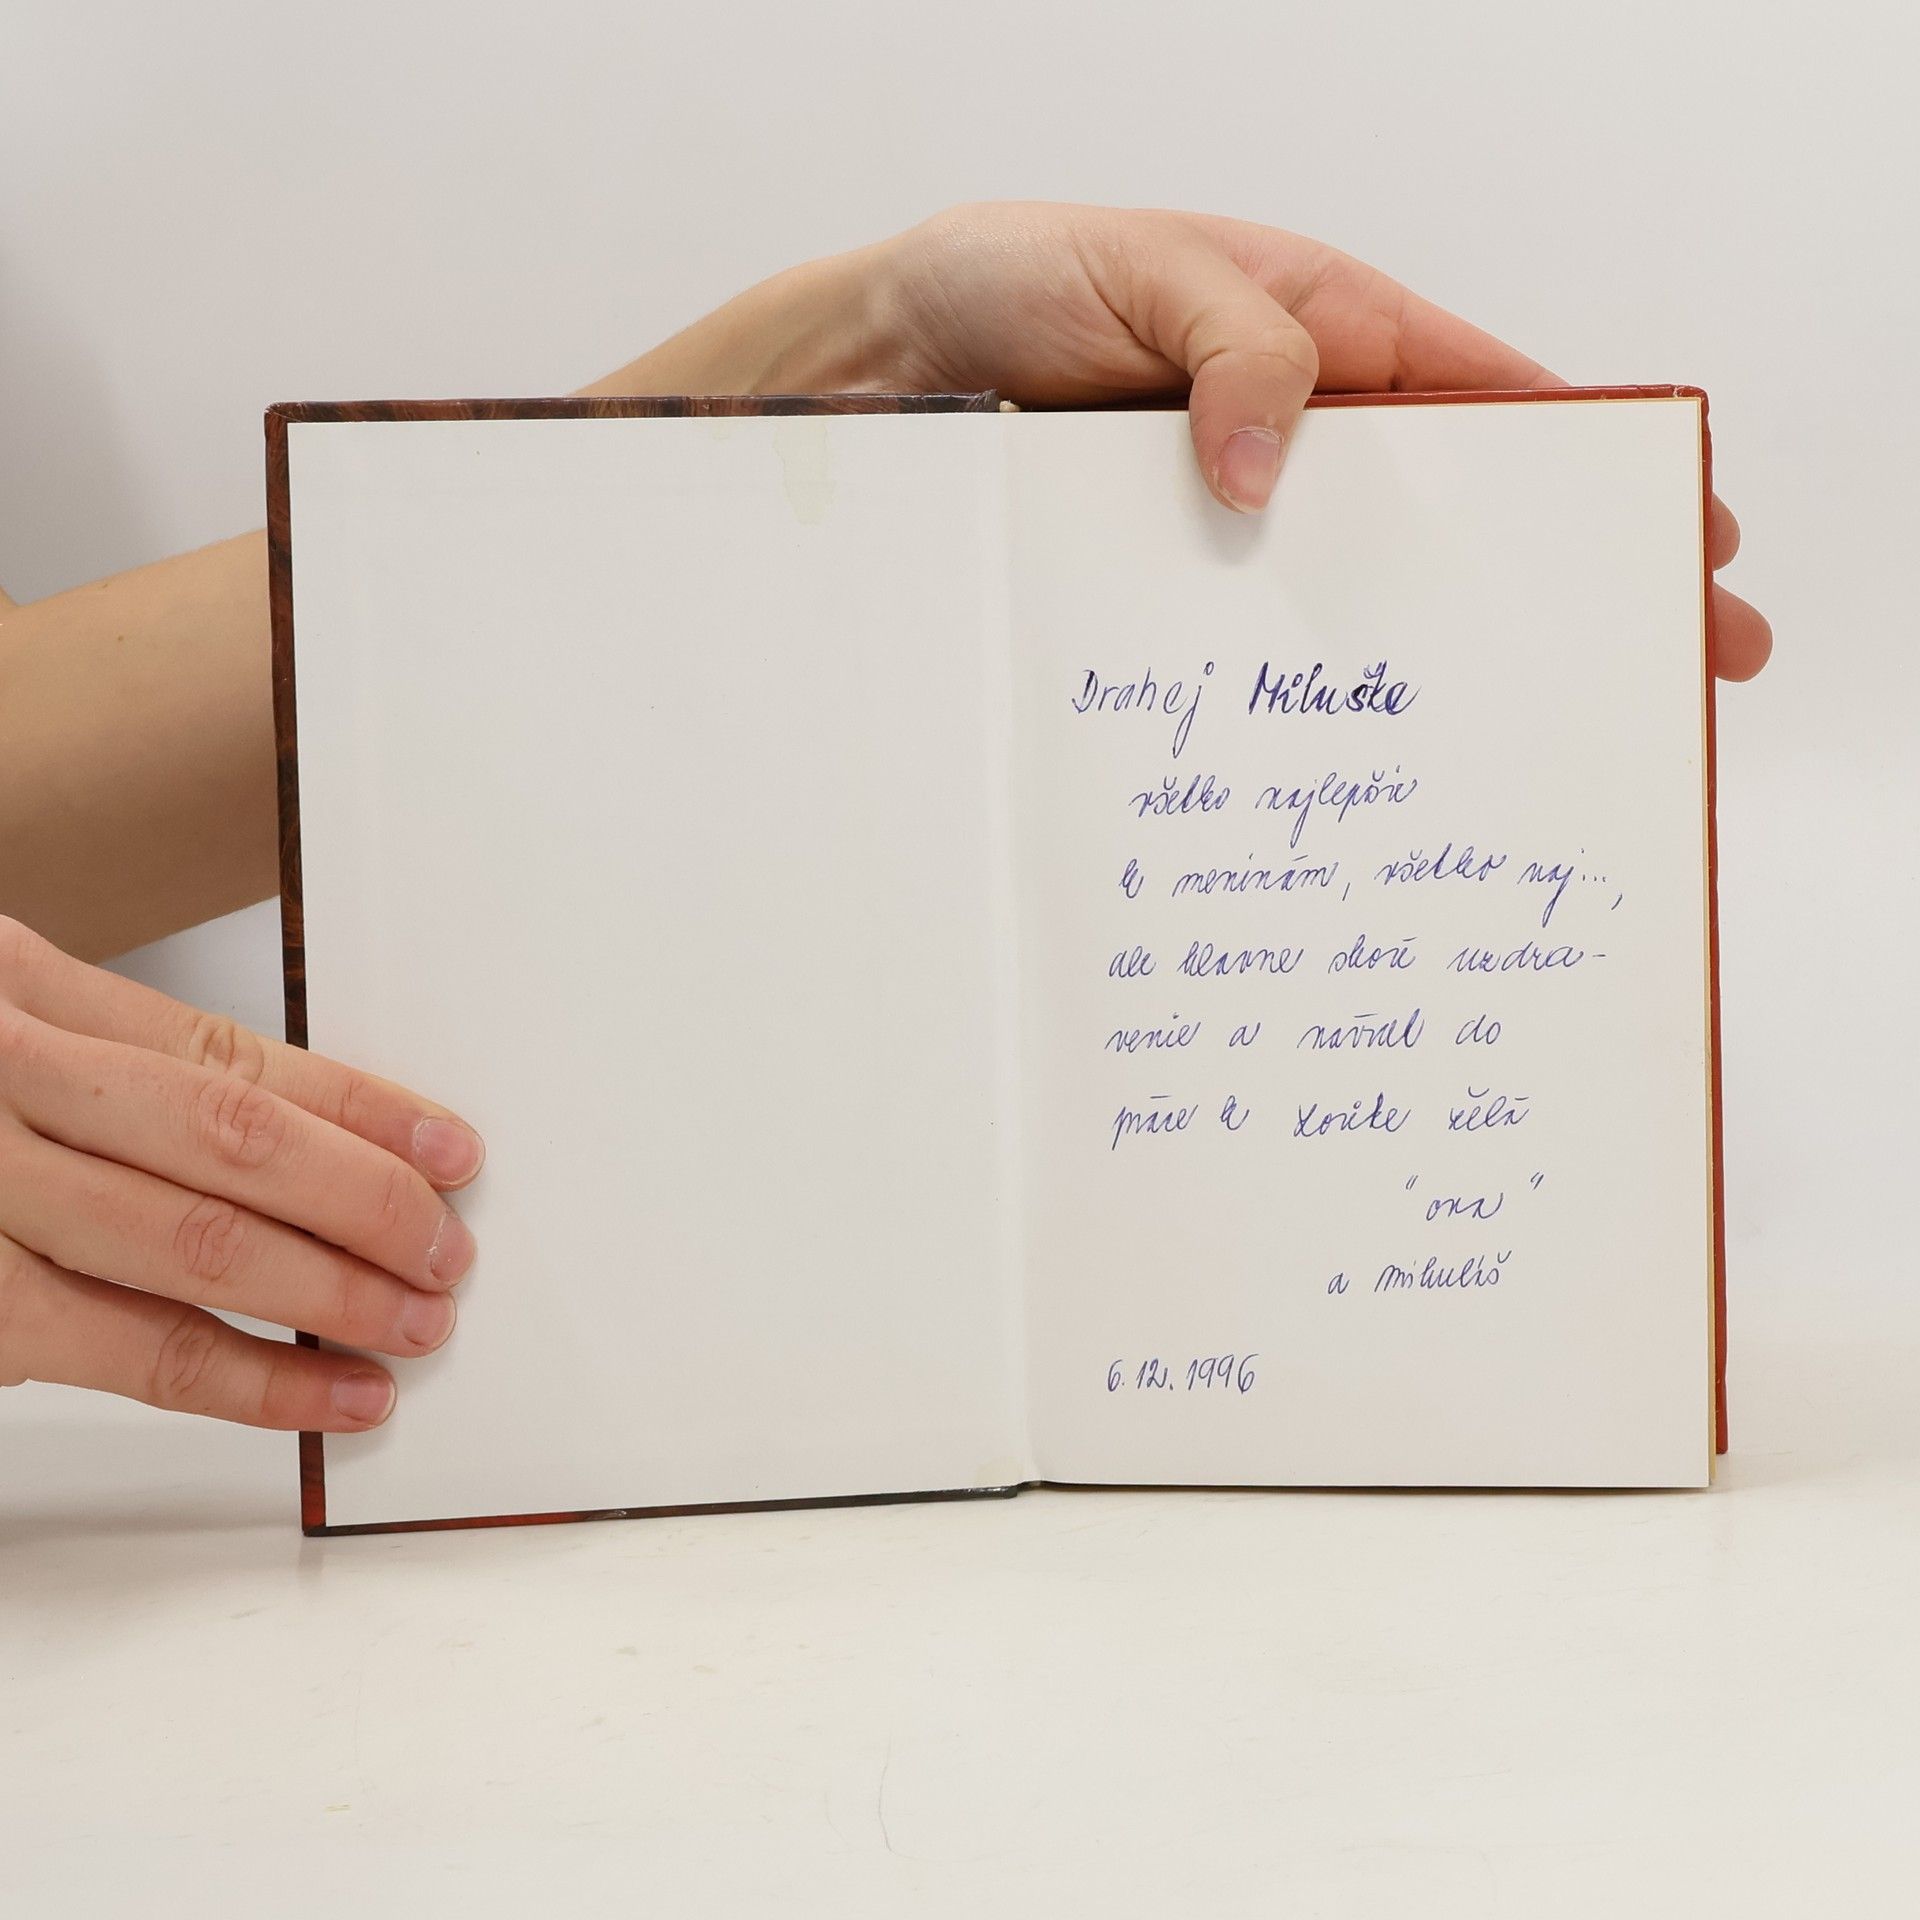 Drahej Miluške
všetko najlepšie
k meninám, všetko naj...,
ale hlavne skoré uzdra-
venie a návrat do
práce k Zorke želá
"ona"
a mikuláš
6.12.1996